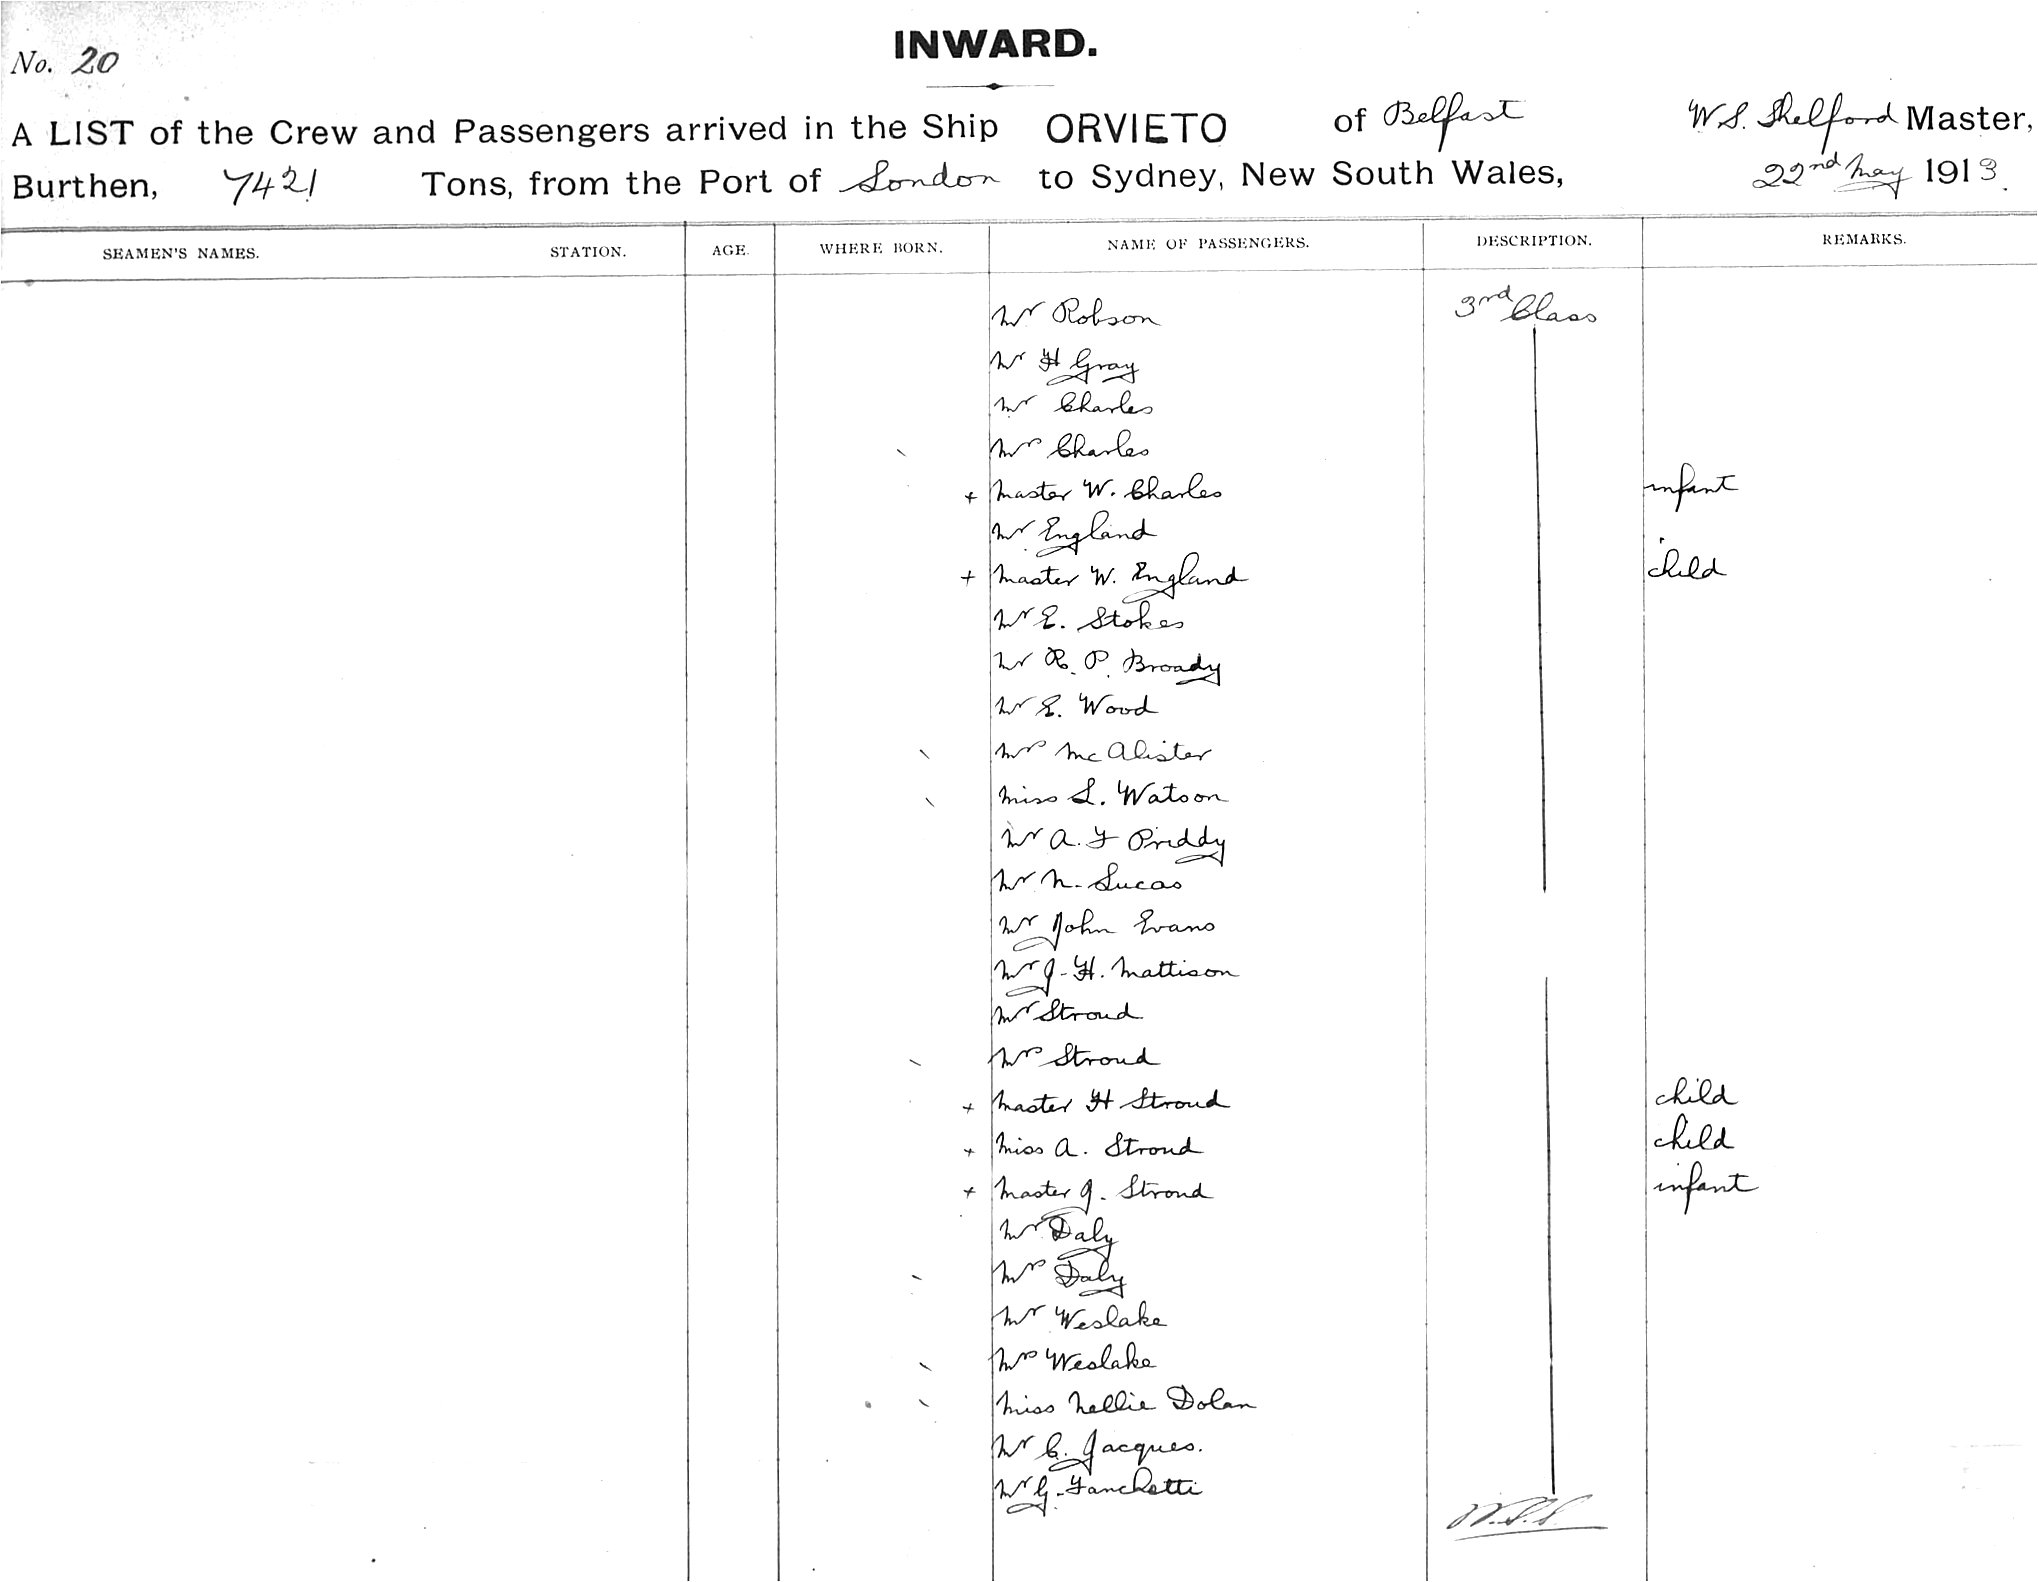 No. 20
INWARD.
A LIST of the Crew and Passengers arrived in the Ship ORVIETO of Belfast W S. Shelford Master,
Burthen, 7421 Tons, from the Port of London to Sydney, New South Wales, 22nd May 1913.
SEAMEN'S NAMES. STATION. AGE. WHERE BORN. NAME OF PASSENGERS. DESCRIPTION. REMARKS.
Mr Robson 3rd Class
Mr H Gray
Mr Charles
Mrs Charles
+ Master W. Charles infant
Mr England
+ Master W. England child
Mr E. Stokes
Mr R. P. Broady
Mr E. Wood
Mrs McAlister
Miss L. Watson
Mr A. F Priddy
Mr N. Lucas
Mr John Evans
Mr J. H. Mattison
Mr Stroud
Mrs Stroud
+ Master H Stroud child
+ Miss A. Stroud child
+ Master J. Stroud infant
Mr Daly
Mrs Daly
Mr Weslake
Mrs Weslake
Miss Nellie Dolan
Mr C. Jacques.
Mr G. Fanchetti
W.S.S.